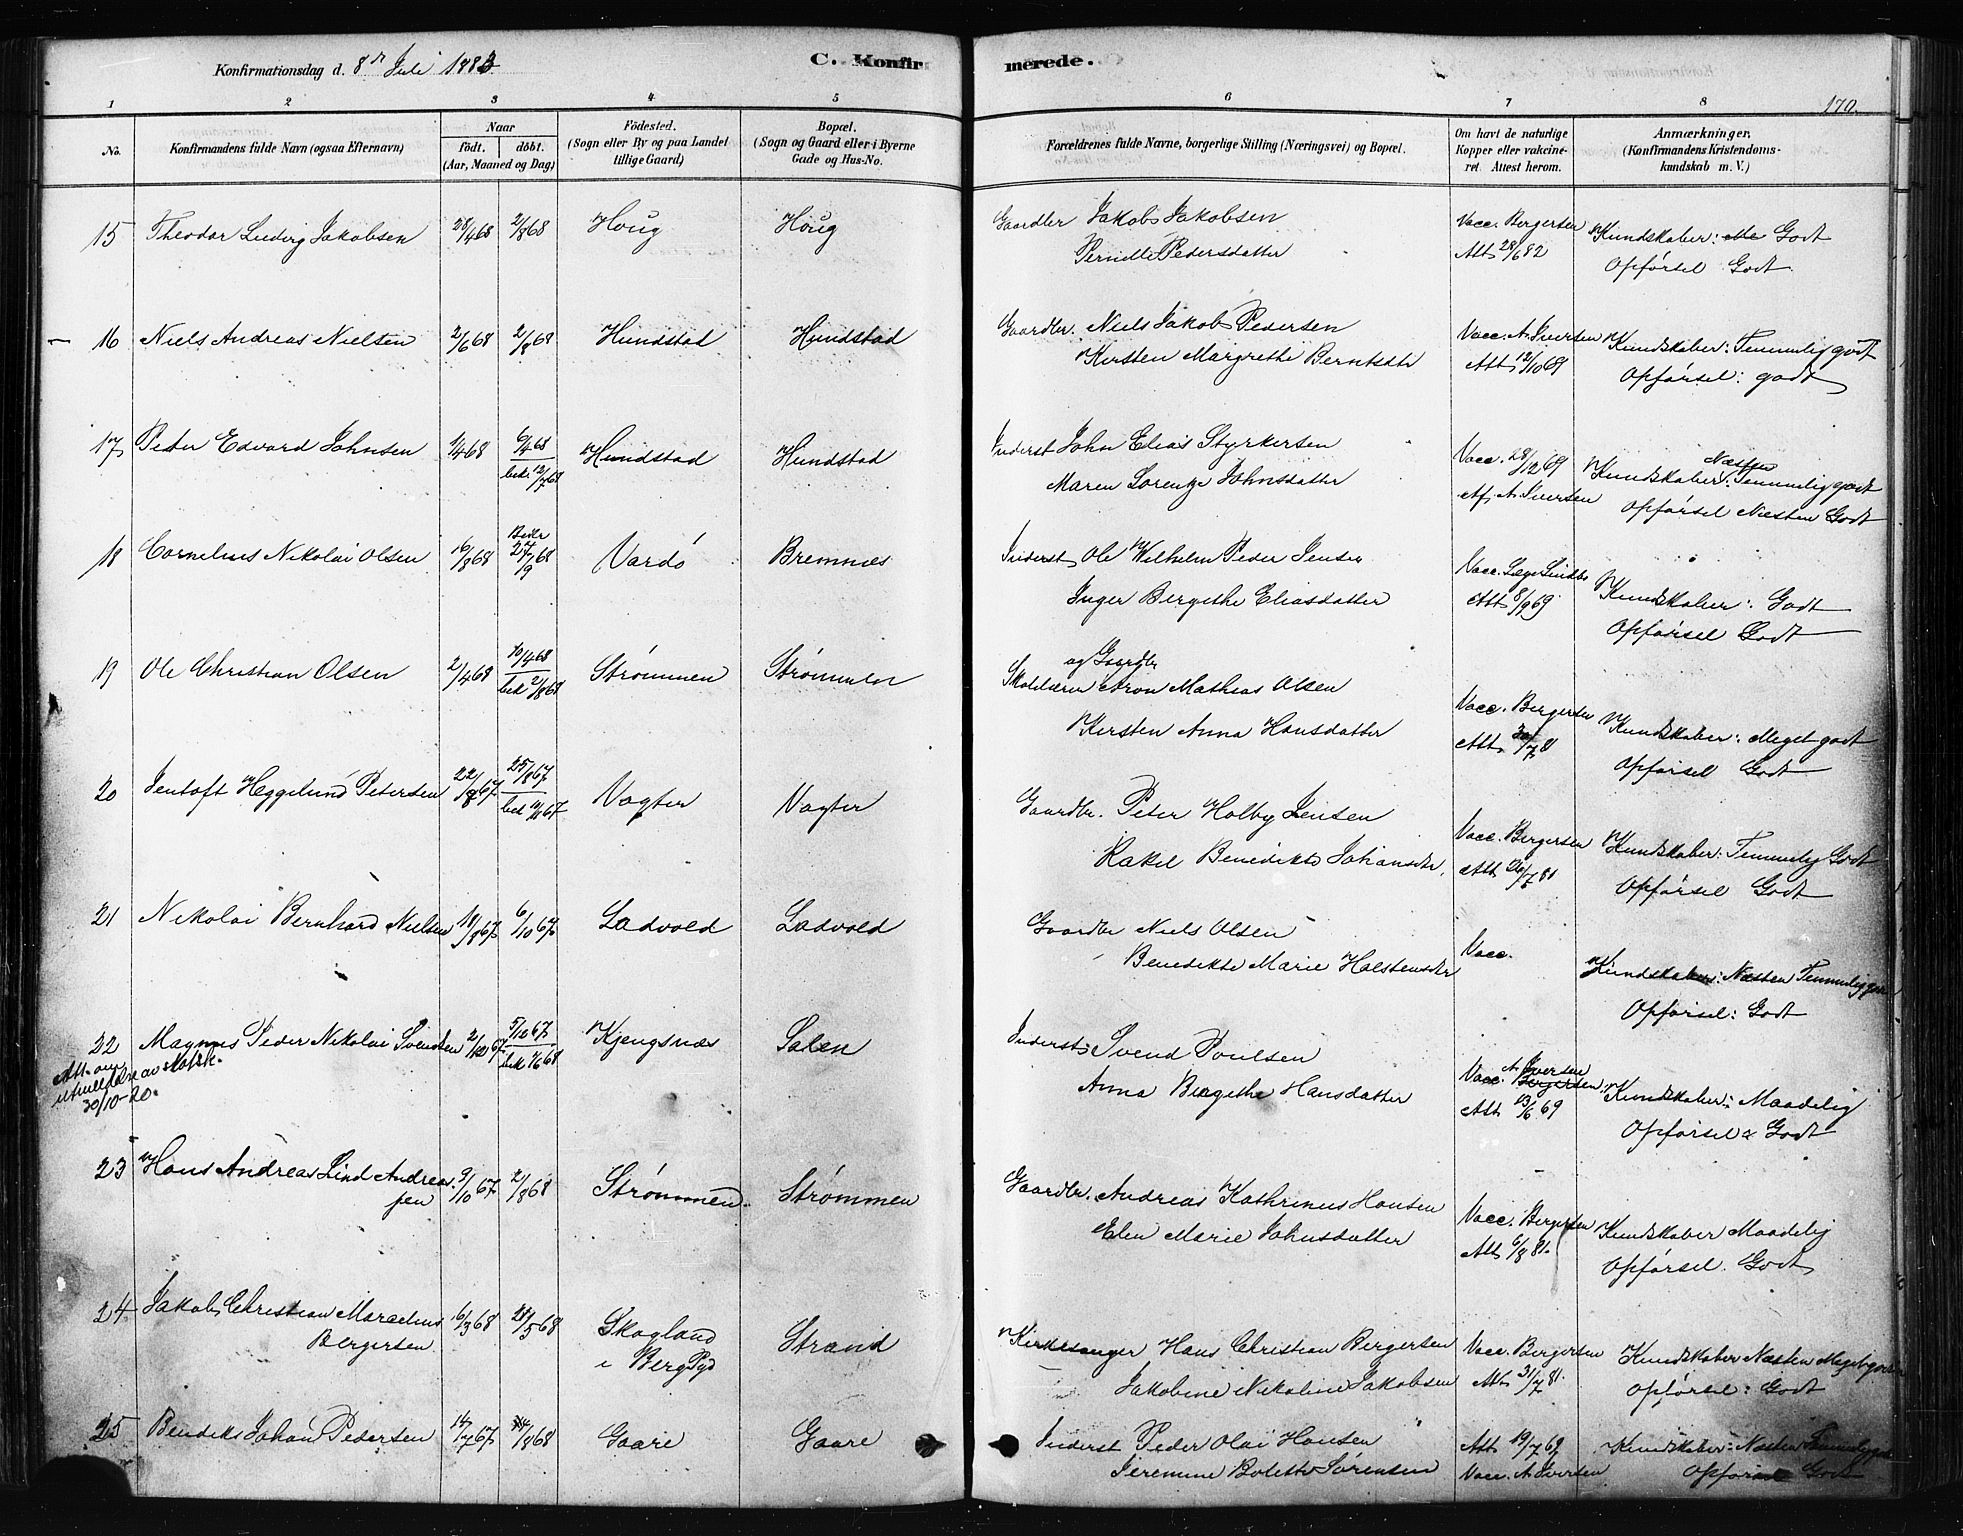 Konfirmationsdag d. 8de Juli 1883
C. Konfir
merede.
170.
1 2 3 4 5 6 7 8
No.
Konfirmandens fulde Navn (ogsaa Efternavn)
Naar
født. døbt.
(Aar, Maaned og Dag)
Födested.
(Sogn eller By og paa Landet
tillige Gaard)
Bopæl.
(Sogn og Gaard eller i Byerne
Gade og Hus-No.
Forældrenes fulde Navne, borgerlige Stilling (Næringsvei) og Bopæl.
Om havt de naturlige
Kopper eller vakcine-
ret Attest herom.
Anmærkninger.
(Konfirmandens Kristendoms-
kundskab m. V.)
15 Theodor Ludvig Jakobsen 28/4 68 2/8 68 Houg Houg Gaardbr Jakob Jakobsen Vacc. Bergersen Kundskaber: Godt
Pernille Pedersdatter Att 28/6 82 Opførsel Godt
16 Niels Andreas Nielsen 2/6 68 2/8 68 Hundstad Hundstad Gaardbr. Niels Jakob Pedersen Vacc. A. Iversen Kundskaber: Temmelig godt
Kirsten Margrethe Berntsdtr Att 12/10 69 Opførsel: godt
17 Peter Edvard Johnsen 1/4 68 6/4 68 Hundstad Hundstad Inderst John Elias Styrkersen Vacc. 28/12 69 Kundskaber: Næsten Temmelig godt
bek. 12/7 68 Maren Lorentze Johnsdatter af A. Iversen Opførsel Næsten Godt
18 Cornelius Nikolai Olsen 16/8 68 27/9 68 Vardø Bremnes Inderst Ole Wilhelm Peder Jensen Vacc. Kundskaber: Godt
Inger Bergithe Eliasdatter Att 8/9 69 Opførsel Godt
19 Ole Christian Olsen 2/4 68 10/4 68 Strømmen Strømmen og Gaardbr
bek 2/8 68 Skolelærer Aron Mathias Olsen Vacc. Bergersen Kundskaber: Meget godt
Kirsten Anna Hansdatter Att Opførsel Godt
20 Jentoft Heggelund Petersen 22/8 67 25/8 67 Vagter Vagter Gaardbr. Peter Holby Jensen Vacc. Bergersen Kundskaber: Temmelig Godt
Rakel Benedikte Johansdtr. Att 26/7 81 Opførsel Godt
21 Nikolai Bernhard Nielsen 18/8 67 6/10 67 Ladvold Ladvold Gaardbr Niels Olsen Vacc. Kundskaber: Næsten Temmelig godt
Benedikte Marie Holstensdtr Opførsel: Godt
22 Magnus Peder Nikolai Svendsen 5/10 67 Kjengsnæs Salen Inderst Svend Poulsen Vacc. A. Iversen Kundskaber: Maadelig
Att. om
utmeldelse av statsk.
30/10-20.
bek 1/6 68 Anna Birgithe Hansdatter Att 13/6 69 Opførsel Godt
23 Hans Andreas Lind Andreas 9/10 67 2/8 68 Strømmen Strømmen Gaardbr. Andreas Kathrinus Hansen Vacc. Bergersen Kundskaber Maadelig
sen Elen Marie Johnsdatter Att 6/8 81. Opførsel. Godt
24 Jakob Christian Marselius 16/3 68 28/5 68 Skogland Strand Kirkesanger Hans Christian Bergersen Vacc. Bergersen Kundskaber Næsten Meget godt
Bergersen i Berg Pgd Jakobine Nikoline Jakobsen Att 31/7 81. Opførsel: Godt
25 Bendiks Johan Pedersen 14/7 67 Gaare Gaare Inderst Peder Olai Hansen Att 19/7 69 Kundskaber: Næsten Temmelig godt
Jeremine Bolette Sørensen Vacc. A. Iversen Opførsel Godt